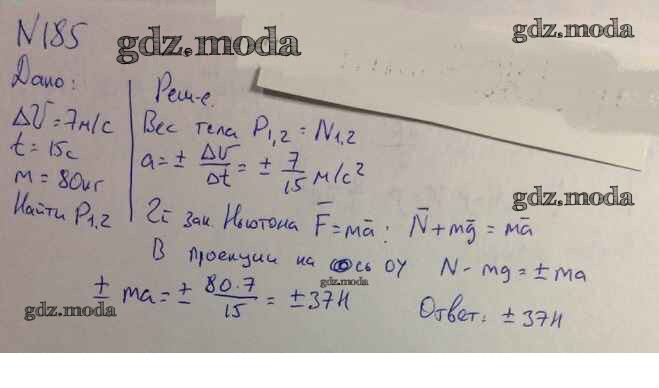 N185
gdz.moda
gdz.moda
Дано:
ΔV = 7м/с
t = 15с
m = 80кг
Найти P1,2
Реш-е.
Вес тела P1,2 = N1,2
a = ± ΔV/Δt = ± 7/15 м/с²
gdz.moda
2й зак. Ньютона F̅ = ma̅ : N̅ + mg̅ = ma̅
В проекции на ось OY N - mg = ± ma
gdz.moda
± ma = ± 80·7/15 = ± 37Н
gdz.moda
Ответ: ± 37Н